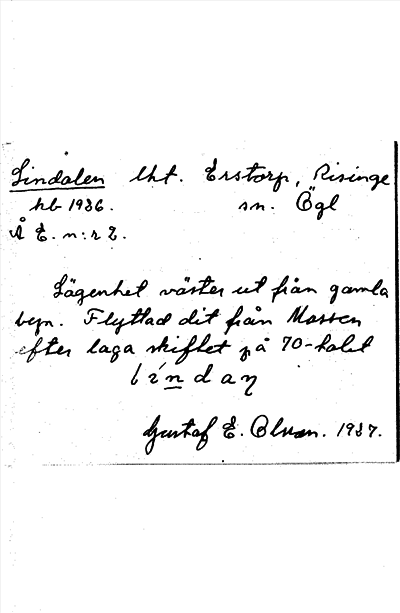 Lindalen lht. Erstorp, Risinge
hb 1936. sn. Ögl
Å E. n:r 2.
Lägenhet väster ut från gamla
byn. Flyttad dit från Mossen
efter laga skiftet på 70-talet
líndaη
Gustaf E. Olsson. 1937.